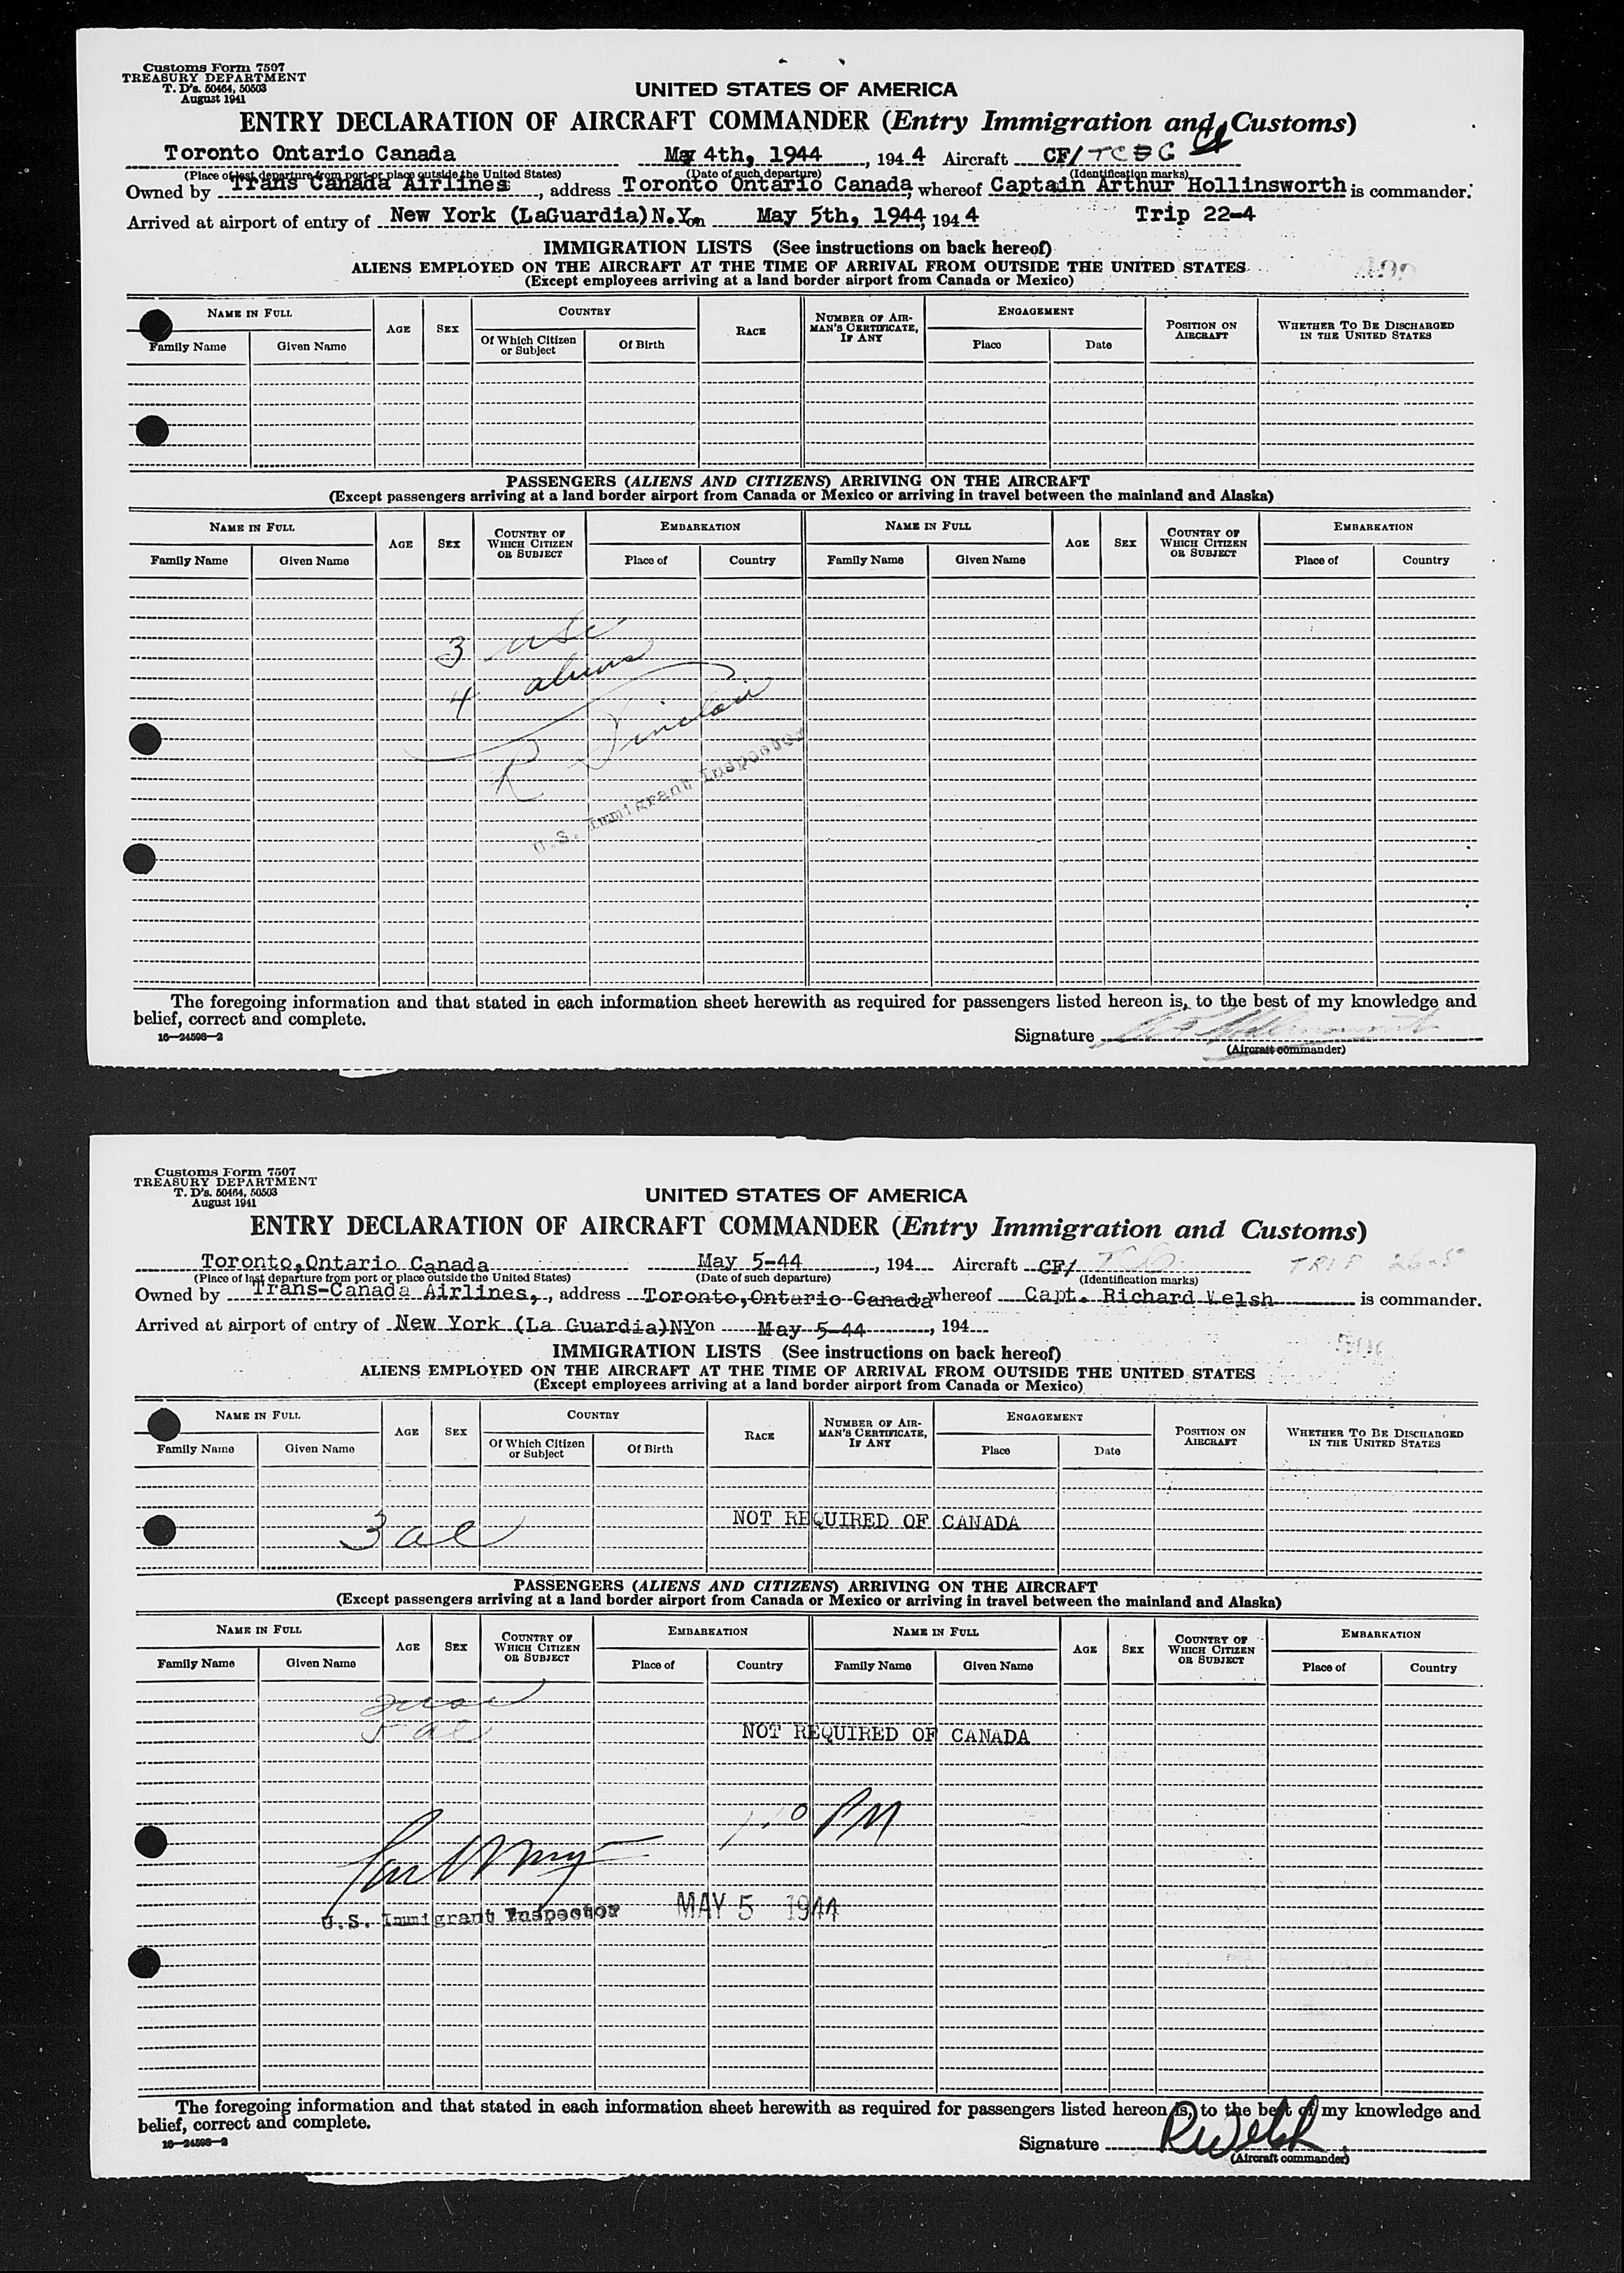 Customs Form 7507
TREASURY DEPARTMENT
T. D's. 50464, 50503
August 1941
UNITED STATES OF AMERICA
ENTRY DECLARATION OF AIRCRAFT COMMANDER (Entry Immigration and Customs)
Toronto Ontario Canada May 4th, 1944, 194 4 Aircraft CF/
(Place of last departure from port or place outside the United States) (Date of such departure) (Identification marks)
Owned by Trans Canada Airlines, address Toronto Ontario Canada, whereof Captain Arthur Hollinsworth is commander.
Arrived at airport of entry of New York (LaGuardia) N.Y. on May 5th, 1944, 194 4 Trip 22-4
IMMIGRATION LISTS (See instructions on back hereof)
ALIENS EMPLOYED ON THE AIRCRAFT AT THE TIME OF ARRIVAL FROM OUTSIDE THE UNITED STATES
(Except employees arriving at a land border airport from Canada or Mexico)
NAME IN FULL AGE SEX COUNTRY RACE NUMBER OF AIRMAN'S CERTIFICATE, IF ANY ENGAGEMENT POSITION ON AIRCRAFT WHETHER TO BE DISCHARGED IN THE UNITED STATES
Family Name Given Name Of Which Citizen or Subject Of Birth Place Date
PASSENGERS (ALIENS AND CITIZENS) ARRIVING ON THE AIRCRAFT
(Except passengers arriving at a land border airport from Canada or Mexico or arriving in travel between the mainland and Alaska)
NAME IN FULL AGE SEX COUNTRY OF WHICH CITIZEN OR SUBJECT EMBARKATION NAME IN FULL AGE SEX COUNTRY OF WHICH CITIZEN OR SUBJECT EMBARKATION
Family Name Given Name Place of Country Family Name Given Name Place of Country
3 usc
4 aliens
R Sinclair
U.S. Immigrant Inspector
The foregoing information and that stated in each information sheet herewith as required for passengers listed hereon is, to the best of my knowledge and
belief, correct and complete.
16—24598—2
Signature
(Aircraft commander)
Customs Form 7507
TREASURY DEPARTMENT
T. D's. 50464, 50503
August 1941
UNITED STATES OF AMERICA
ENTRY DECLARATION OF AIRCRAFT COMMANDER (Entry Immigration and Customs)
Toronto, Ontario Canada May 5-44, 194 Aircraft CF/ TRIP 26-5
(Place of last departure from port or place outside the United States) (Date of such departure) (Identification marks)
Owned by Trans-Canada Airlines, address Toronto, Ontario Canada whereof Capt. Richard Welsh is commander.
Arrived at airport of entry of New York (La Guardia) NY on May 5-44, 194
IMMIGRATION LISTS (See instructions on back hereof)
ALIENS EMPLOYED ON THE AIRCRAFT AT THE TIME OF ARRIVAL FROM OUTSIDE THE UNITED STATES
(Except employees arriving at a land border airport from Canada or Mexico)
NAME IN FULL AGE SEX COUNTRY RACE NUMBER OF AIRMAN'S CERTIFICATE, IF ANY ENGAGEMENT POSITION ON AIRCRAFT WHETHER TO BE DISCHARGED IN THE UNITED STATES
Family Name Given Name Of Which Citizen or Subject Of Birth Place Date
NOT REQUIRED OF CANADA
3 al
PASSENGERS (ALIENS AND CITIZENS) ARRIVING ON THE AIRCRAFT
(Except passengers arriving at a land border airport from Canada or Mexico or arriving in travel between the mainland and Alaska)
NAME IN FULL AGE SEX COUNTRY OF WHICH CITIZEN OR SUBJECT EMBARKATION NAME IN FULL AGE SEX COUNTRY OF WHICH CITIZEN OR SUBJECT EMBARKATION
Family Name Given Name Place of Country Family Name Given Name Place of Country
NOT REQUIRED OF CANADA
PM
U.S. Immigrant Inspector MAY 5 1944
The foregoing information and that stated in each information sheet herewith as required for passengers listed hereon is, to the best of my knowledge and
belief, correct and complete.
16—24598—2
Signature RWelsh
(Aircraft commander)